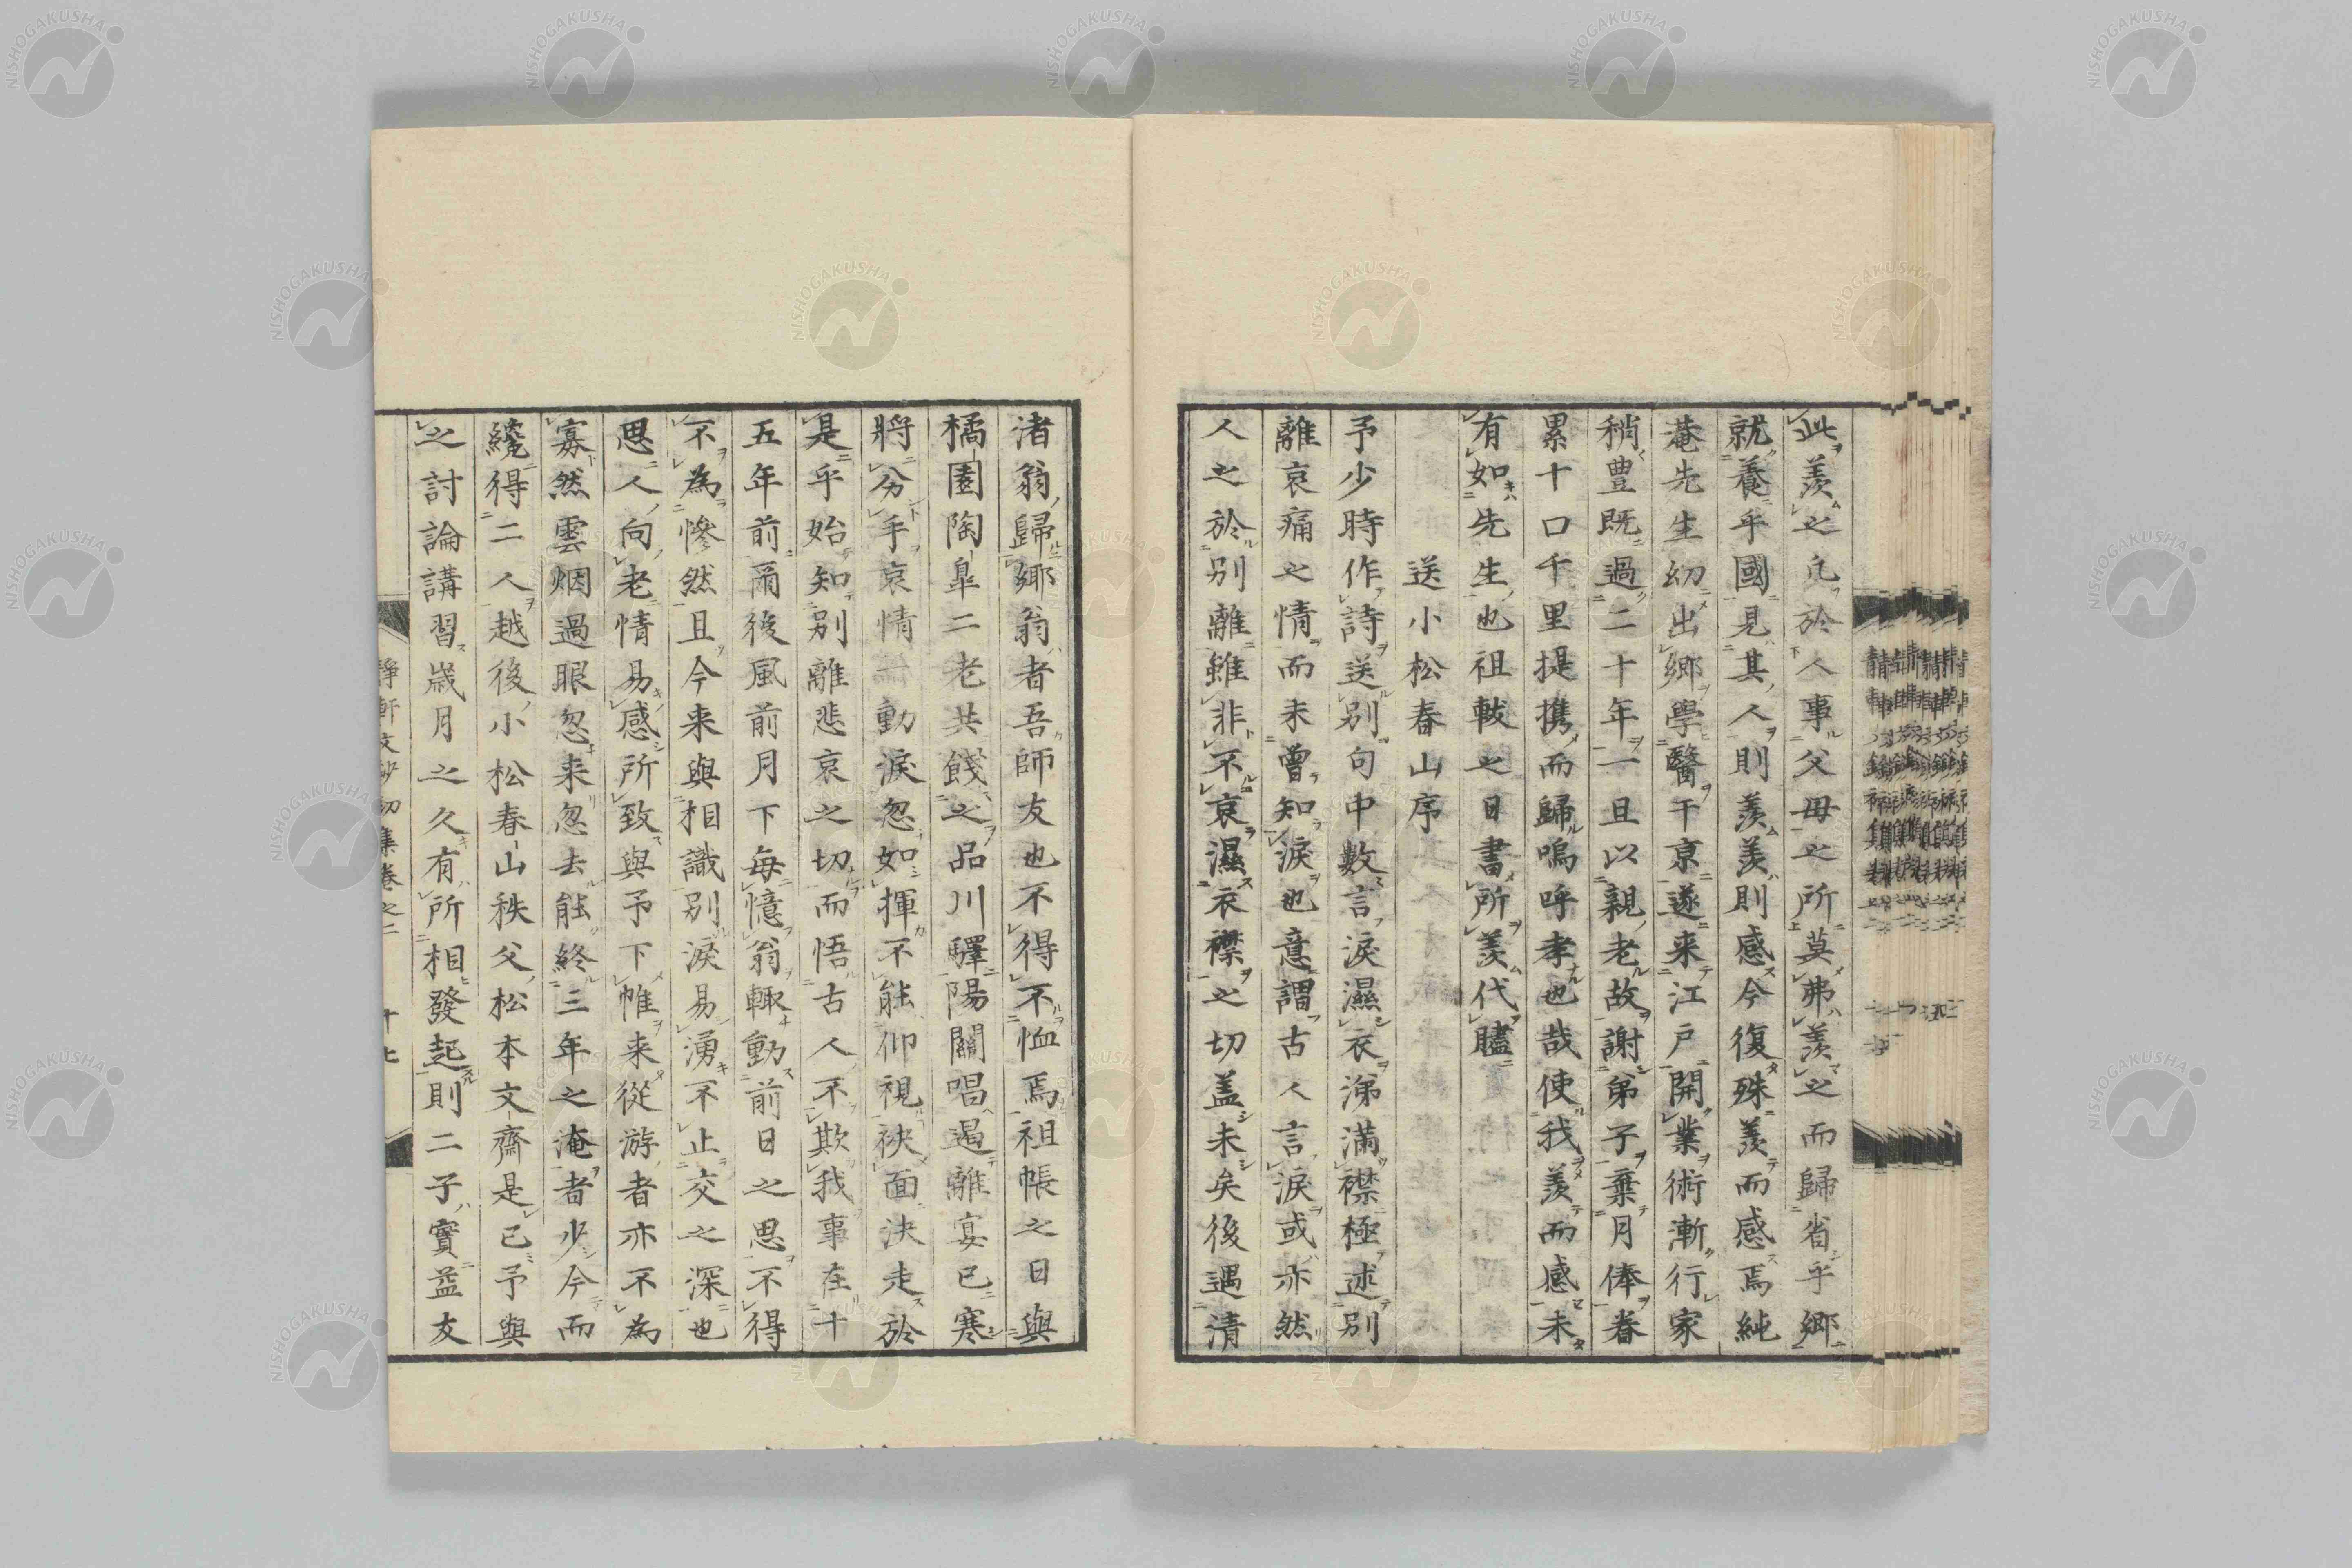 此羨之凢於人事父母之所莫弗羨之而歸省乎鄉
就養乎國見其人則羨羨則感今復殊羨而感焉純
菴先生幼出鄉學醫于京遂来江戸開業術漸行家
稍豊既過二十年一旦以親老故謝弟子棄月俸眷
累十口千里提携而歸嗚呼孝也哉使我羨而感未
有如先生也祖載之日書所羨代贐
送小松春山序
予少時作詩送別句中數言淚濕衣涕滿襟極述別
離哀痛之情而未曾知淚也意謂古人言淚或亦然
人之於別離雖非不哀濕衣襟之切盖未矣後遇清
渚翁歸鄉翁者吾師友也不得不恤焉祖帳之日與
橘園陶皐二老共餞之品川驛陽關唱遏離宴已寒
將分手哀情動淚忽如揮不能仰視袂面決走於
是乎始知別離悲哀之切而悟古人不欺我事在十
五年前爾後風前月下每憶翁輙動前日之思不得
不為慘然且今来與相識別淚易湧不止交之深也
思人向老情易感所致與予下帷来從游者亦不為
寡然雲烟過眼忽来忽去能終三年之淹者少今而
纔得二人越後小松春山秩父松本文齋是已予與
之討論講習歳月之久有所相發起則二子實益友
靜軒文鈔初集卷之二 十七
NISHOGAKUSHA